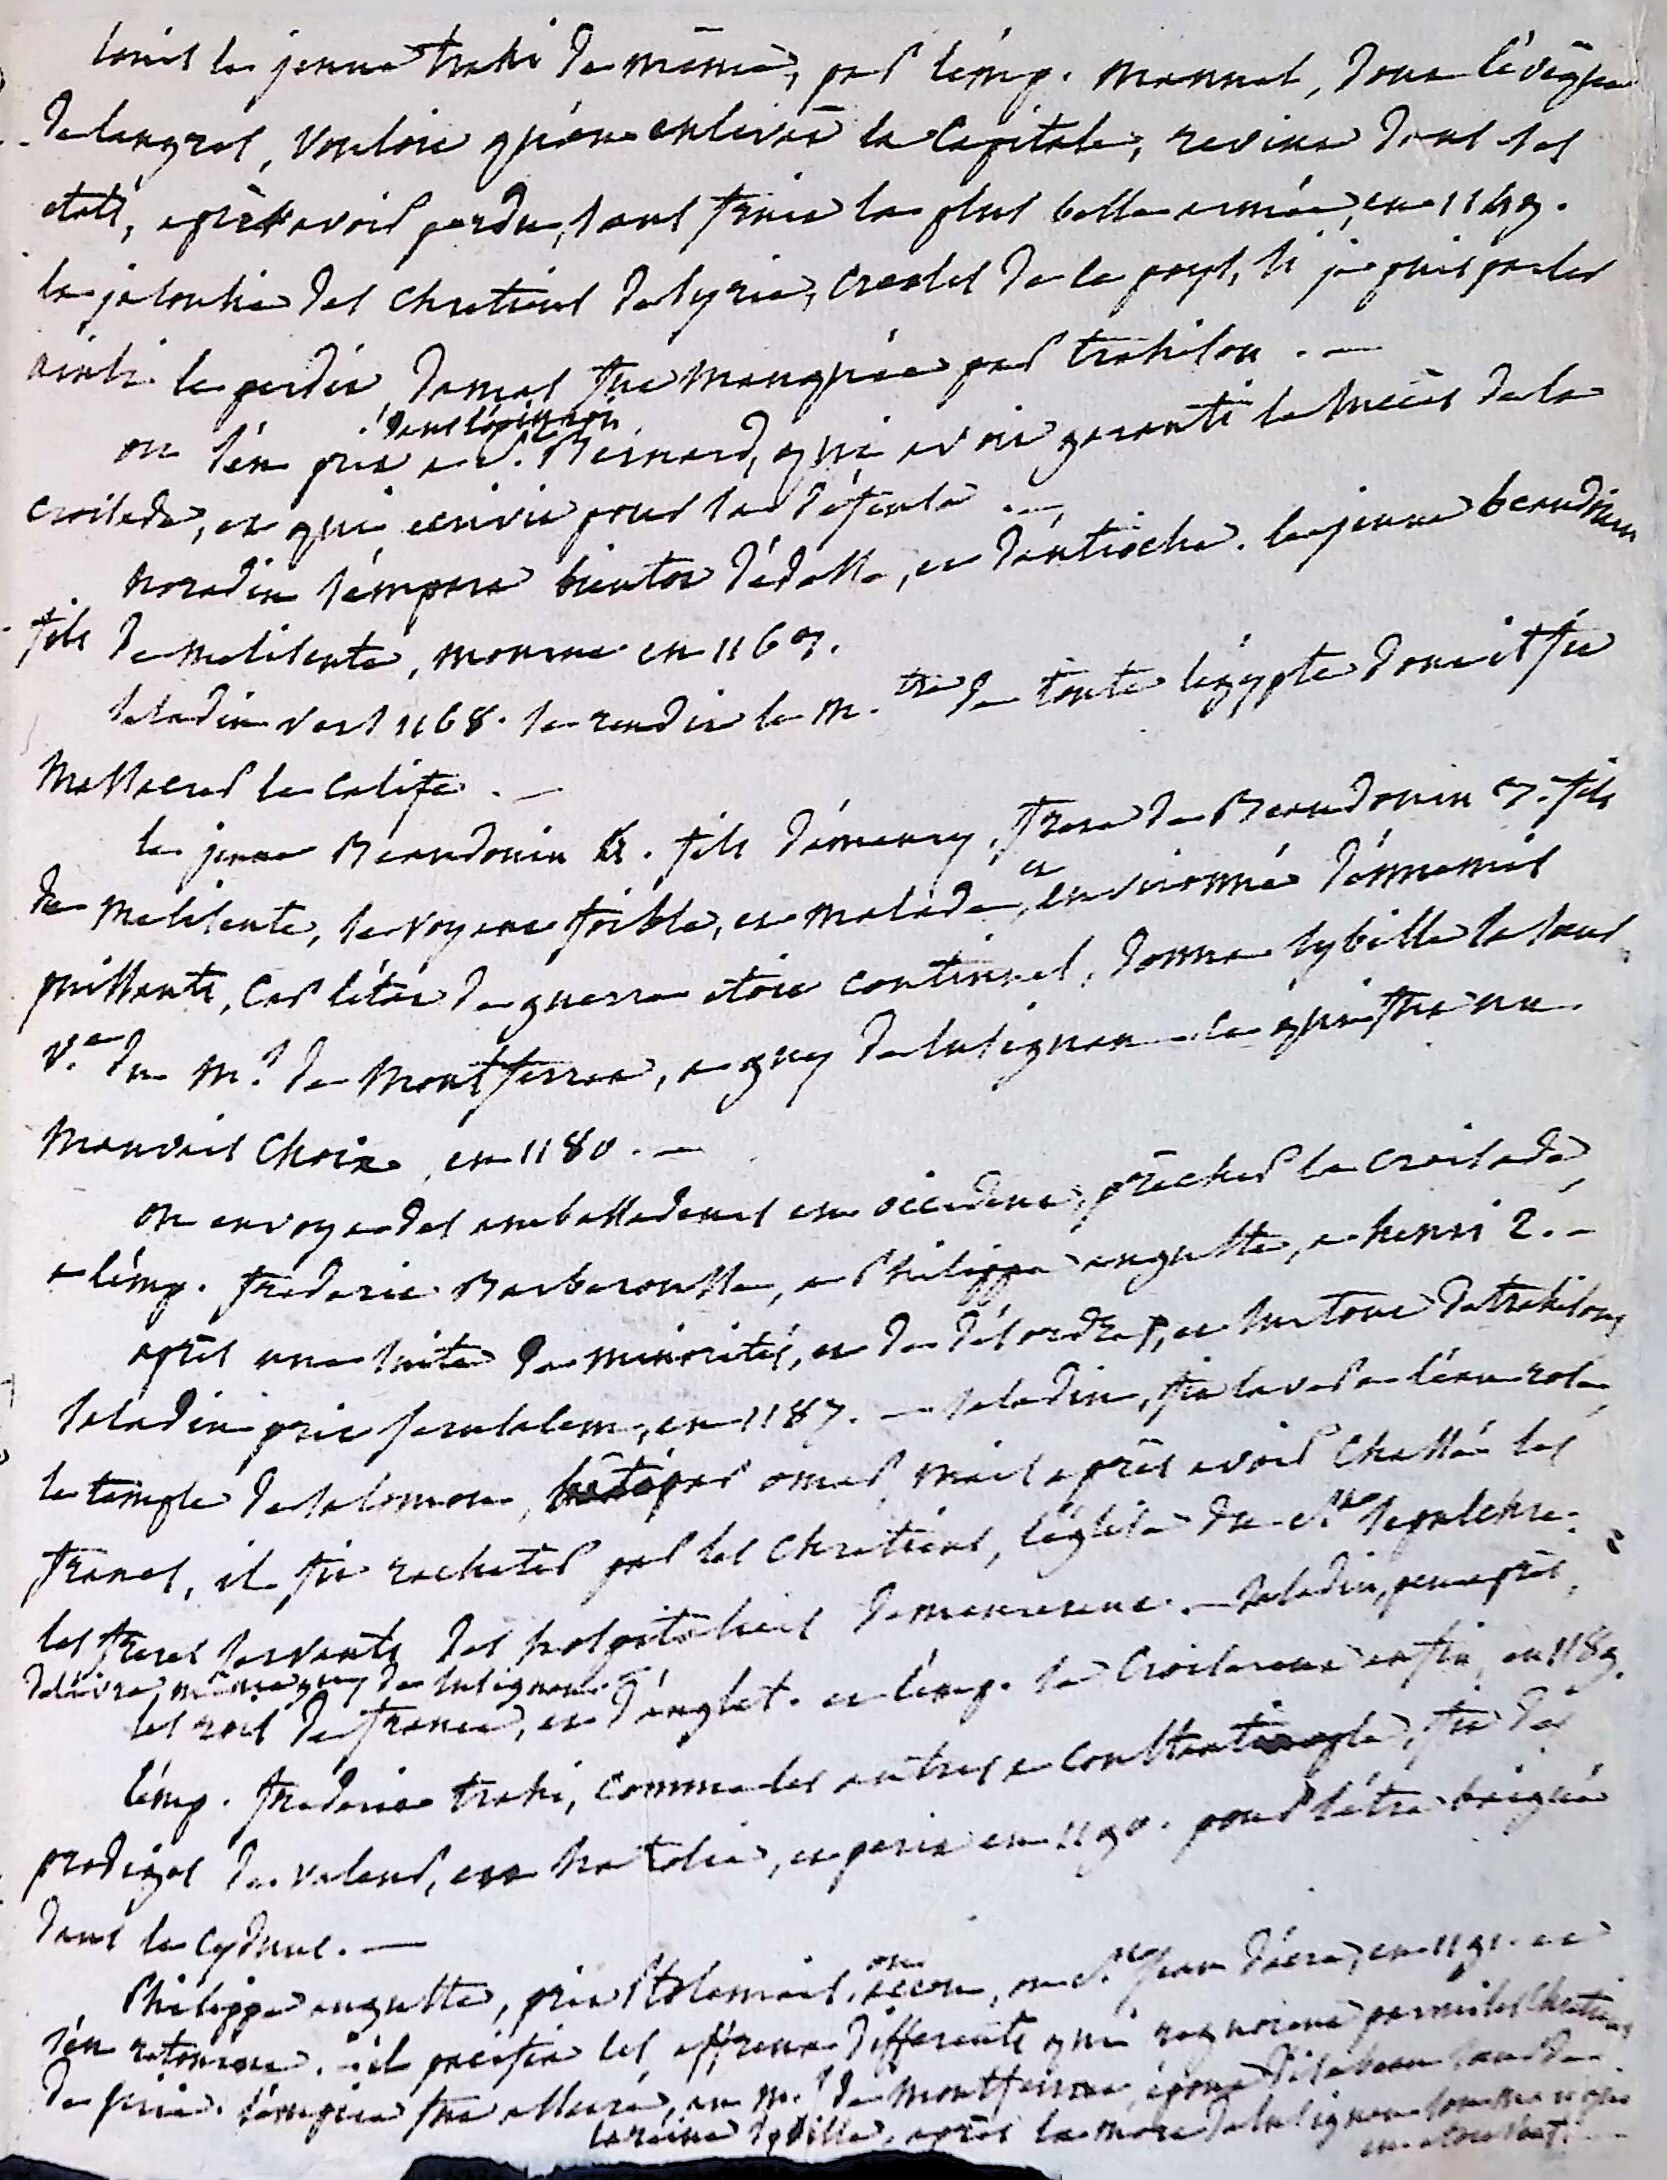 louis le jeune trahi de même, par l'emp. manuel, dont l'évêque
de langres, vouloit qu'on enlevât la capitale, revint dans ses
etats, après avoir perdu, sans fruit la plus belle armée, en 1149.
la jalousie des chretiens de syrie, creoles de ce pays, si je puis parler
ainsi le perdit, damas fut manquée par trahison. —
on s'en prit a St. Bernard, qui avoit garanti le succès de la
dans l'opinion
croisade, et qui ecrivit pour sa défense. —
noradin s'empara bientot d'édesse, et d'antioche. le jeune beaudouin
fils de melisente, mourut en 1163.
saladin vers 1168. se rendit le m.tre de toute l'égypte dont il fit
massacrer le calife. —
le jeune Beaudouin 4. fils d'emaury, frere de Beaudouin 3. fils
de melisente, se voyant foible, et malade, et environné d'ennemis
puissants, car l'état de guerre etoit continuel, donna sybille sa soeur
v.e du m.is de montferrat, a guy de lusignan ce qui fut un
mauvais choix, en 1180. —
on envoya des ambassadeurs en occident, prêcher la croisade,
a l'emp. frederic Barberousse, a Philippe auguste, a henri 2. —
après une suite de minorités, et de désordres, et surtout de trahisons
saladin prit jerusalem, en 1187. — saladin, fit laver a l'eau rose,
le temple de salomon, bâti par omar, mais après avoir chassé les
francs, il fit racheter par les chretiens, l'église du St. sepulchre.
les freres servants des hospitaliers demeurerent. — saladin, peu après,
délivra, même guy de lusignan.
les rois de france, et d'anglet. et l'emp. se croiserent enfin, en 1189.
l'emp. frederic trahi, comme les autres a constantinople, fit des
prodiges de valeur, en natolie, et perit en 1190. pour s'être baigné
dans le cydnus. —
Philippe auguste, prit Ptolemais, ou accon, ou St. jean d'acre, en 1191. et
s'en retourna. il pacifia les affreux differents qui regnoient parmi les chretiens
de sirie. l'empire fut assuré, au m.is de montferrat, époux d'isabeau soeur de
la reine sybille, après la mort de lusignan